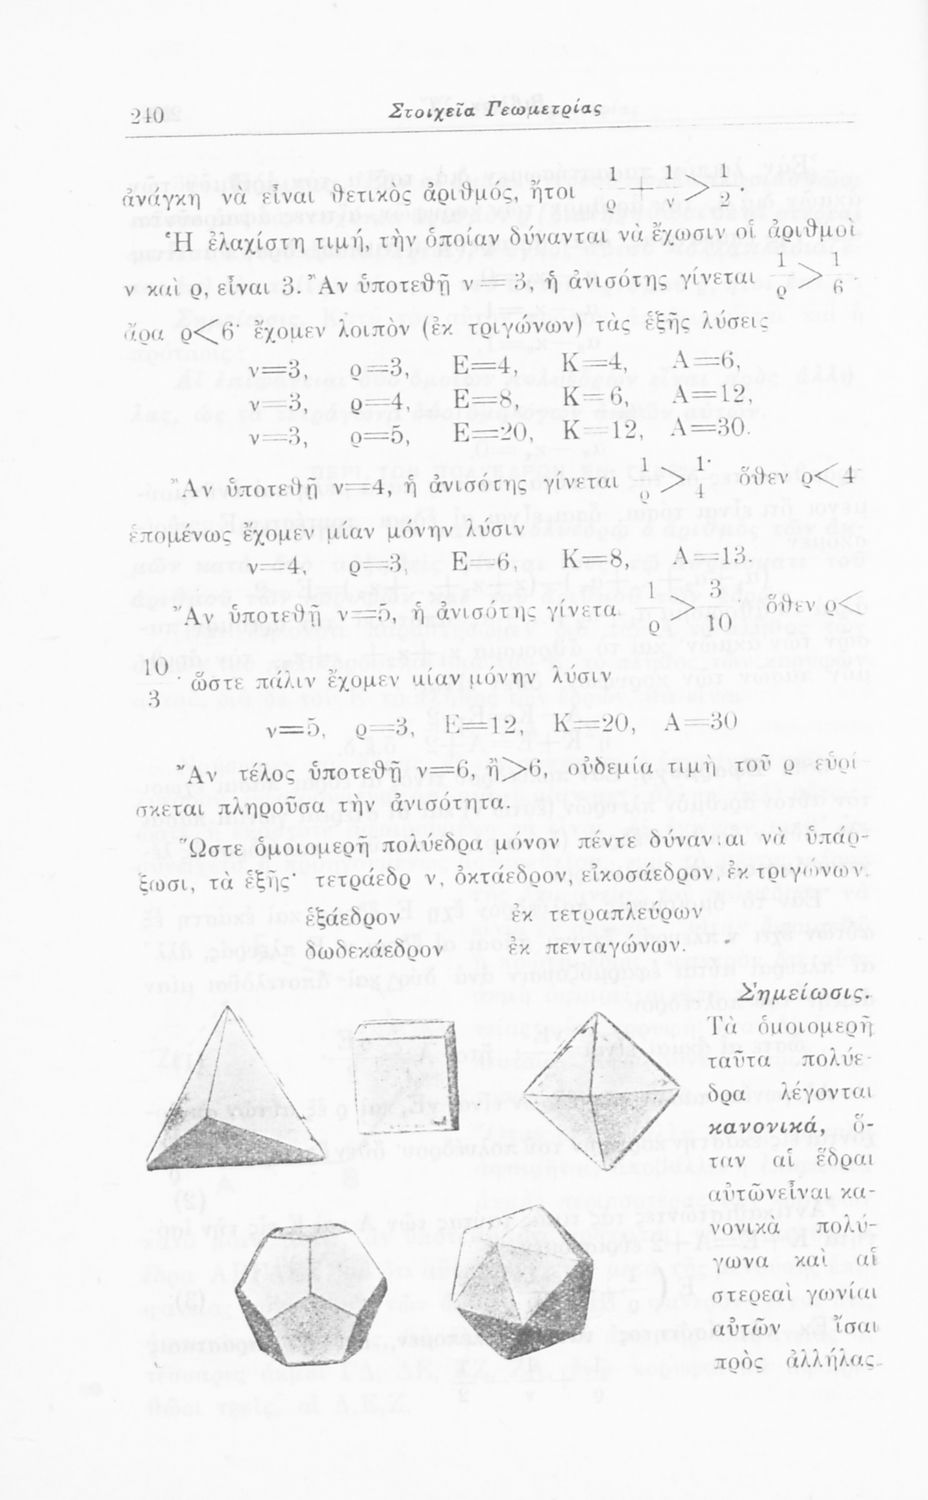 240 Στοιχεῖα Γεωμετρίας
ἀνάγκη νὰ εἶναι θετικὸς ἀριθμός, ἤτοι 1/ρ + 1/ν > 1/2.
Ἡ ἐλαχίστη τιμή, τὴν ὁποίαν δύνανται νὰ ἔχωσιν οἱ ἀριθμοὶ
ν καὶ ρ, εἶναι 3. Ἂν ὑποτεθῇ ν=3, ἡ ἀνισότης γίνεται 1/ρ > 1/6 ·
ἄρα ρ<6· ἔχομεν λοιπὸν (ἐκ τριγώνων) τὰς ἑξῆς λύσεις
ν=3, ρ=3, Ε=4, Κ=4, Α=6,
ν=3, ρ=4, Ε=8, Κ=6, Α=12,
ν=3, ρ=5, Ε=20, Κ=12, Α=30.
Ἂν ὑποτεθῇ ν=4, ἡ ἀνισότης γίνεται 1/ρ > 1/4 · ὅθεν ρ<4
ἑπομένως ἔχομεν μίαν μόνην λύσιν
ν=4, ρ=3, Ε=6, Κ=8, Α=13.
Ἂν ὑποτεθῇ ν=5, ἡ ἀνισότης γίνεται 1/ρ > 3/10 · ὅθεν ρ<
10/3 · ὥστε πάλιν ἔχομεν μίαν μόνην λύσιν
ν=5, ρ=3, Ε=12, Κ=20, Α=30
Ἂν τέλος ὑποτεθῇ ν=6, ἢ >6, οὐδεμία τιμὴ τοῦ ρ εὑρί
σκεται πληροῦσα τὴν ἀνισότητα.
Ὥστε ὁμοιομερῆ πολύεδρα μόνον πέντε δύνανται νὰ ὑπάρ-
ξωσι, τὰ ἑξῆς· τετράεδρον, ὀκτάεδρον, εἰκοσάεδρον, ἐκ τριγώνων.
ἑξάεδρον ἐκ τετραπλεύρων
δωδεκάεδρον ἐκ πενταγώνων.
Σημείωσις.
Τὰ ὁμοιομερῆ
ταῦτα πολύε-
δρα λέγονται
κανονικά, ὅ-
ταν αἱ ἕδραι
αὐτῶν εἶναι κα-
νονικὰ πολύ-
γωνα καὶ αἱ
στερεαὶ γωνίαι
αὐτῶν ἴσαι
πρὸς ἀλλήλας.